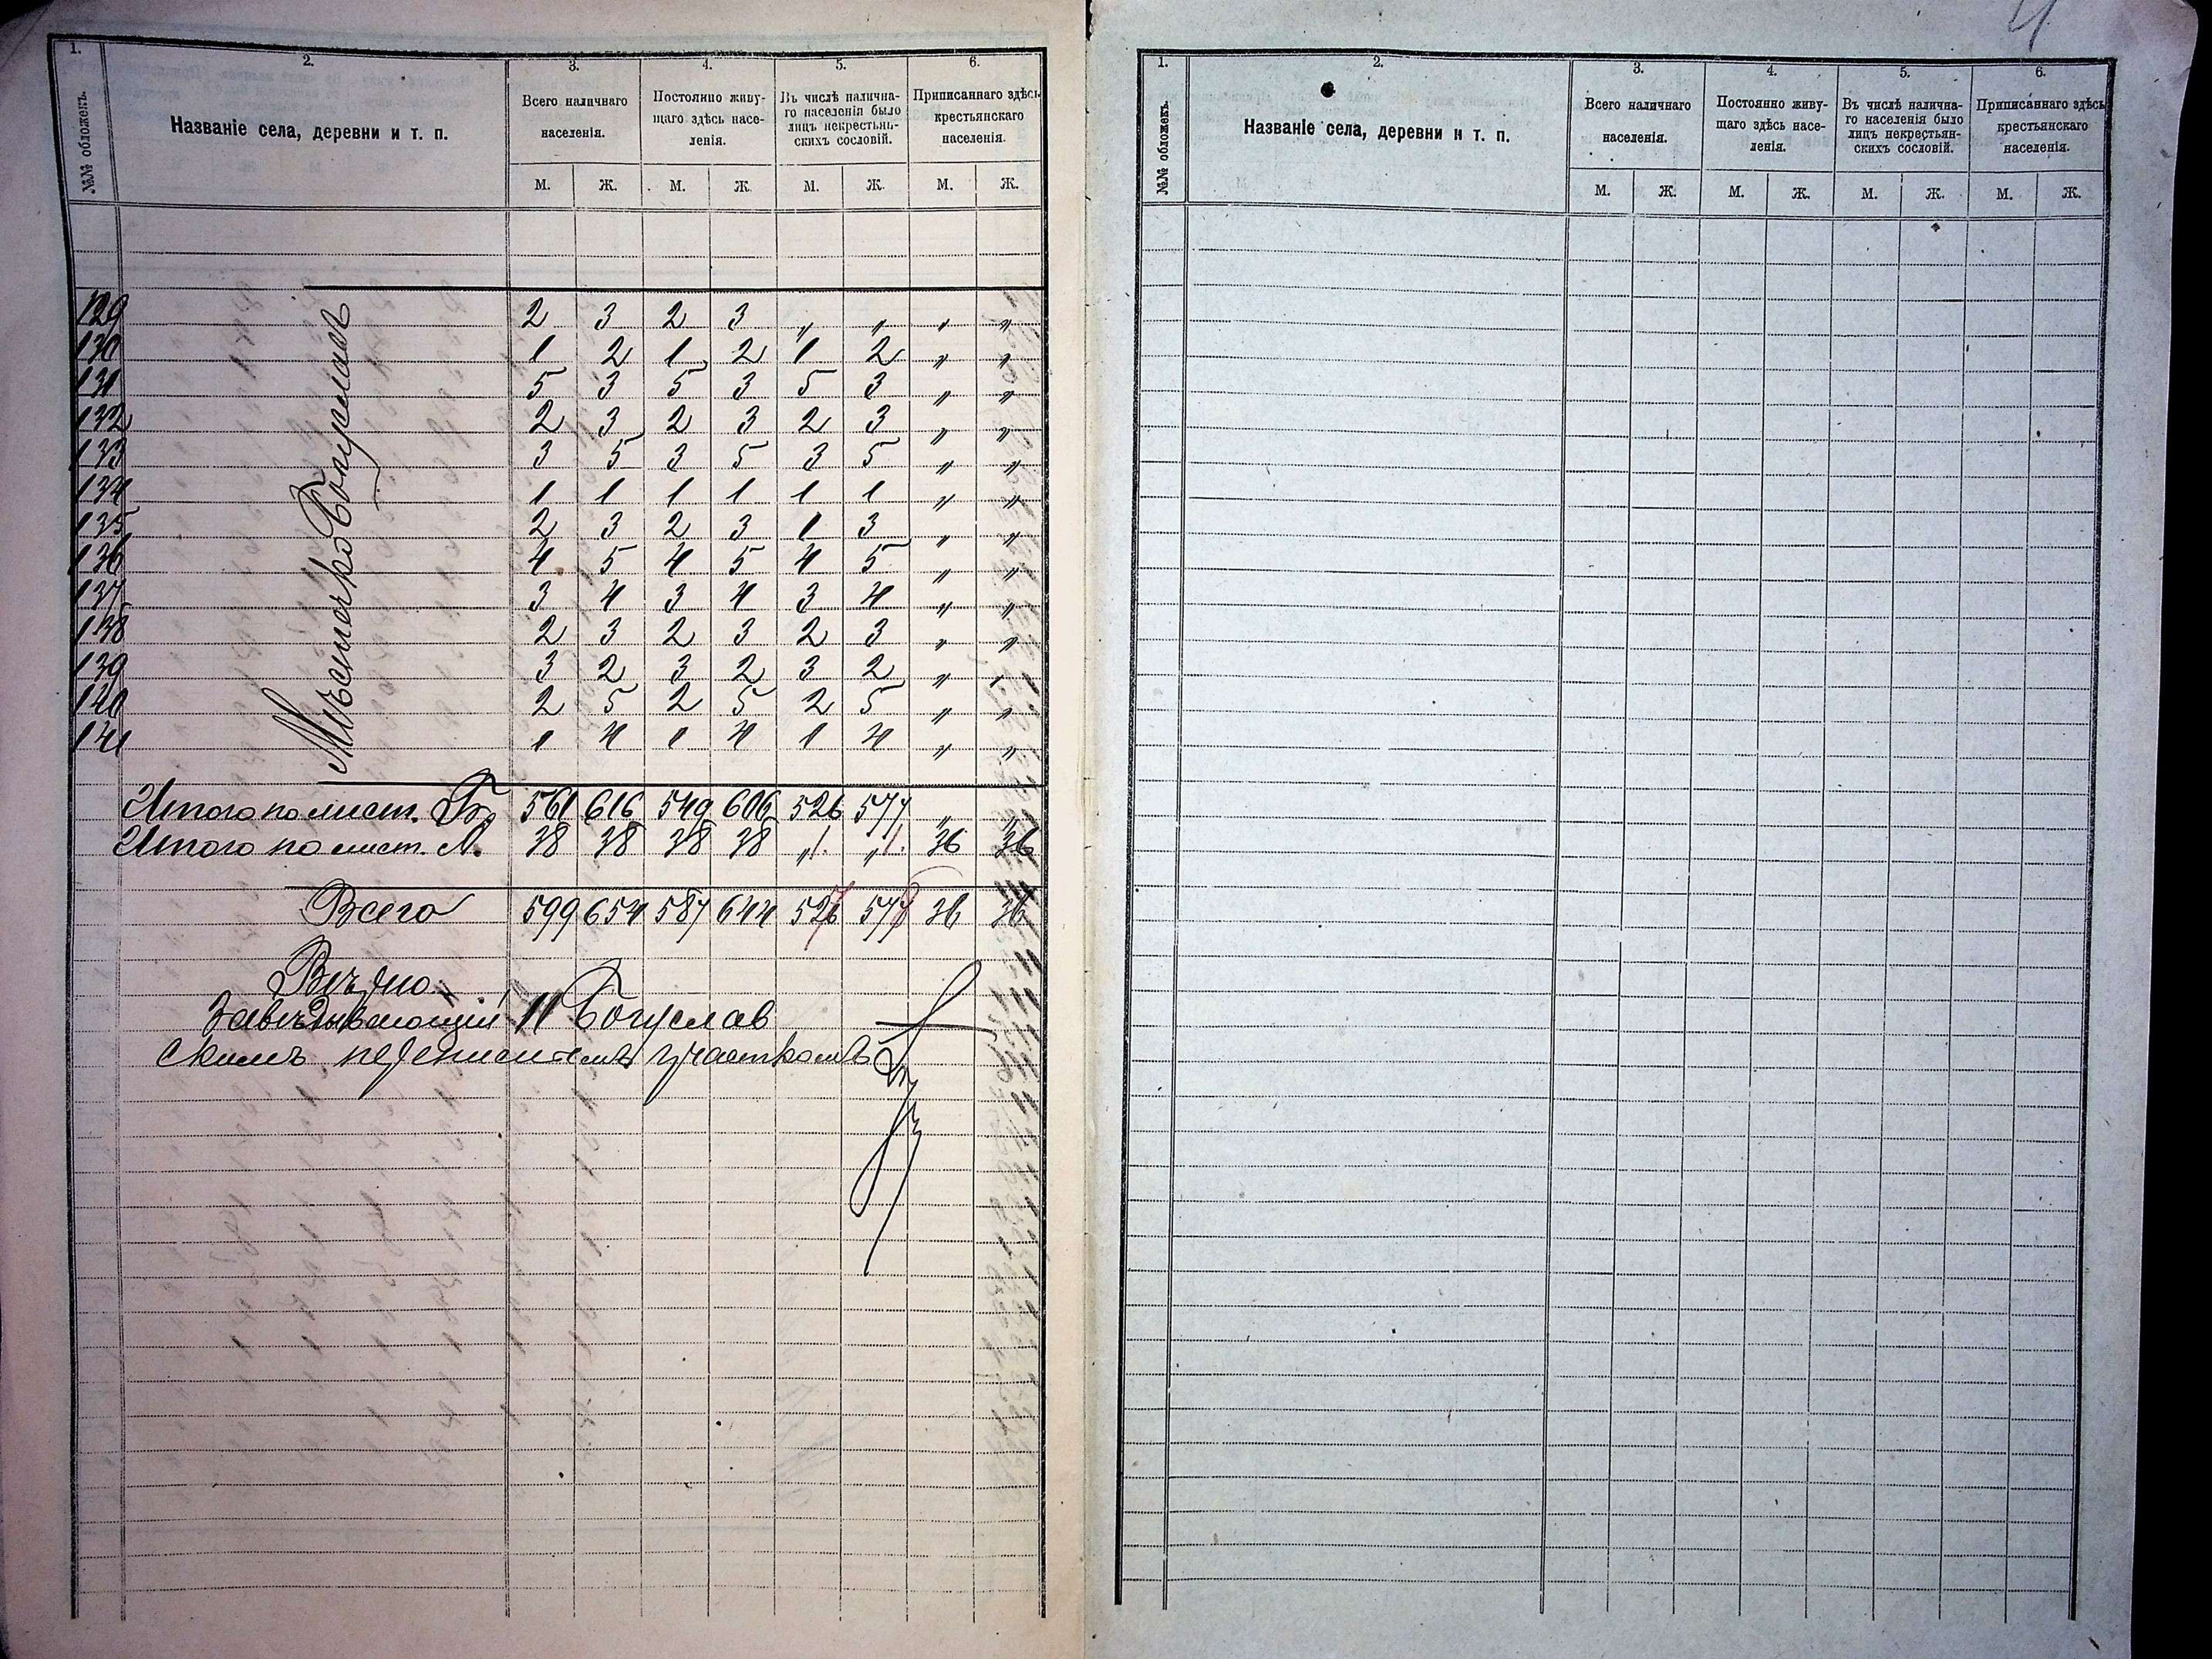 1. 2. 3. 4. 5. 6.
№№ обложекъ. Названіе села, деревни и т. п. Всего наличнаго населенія. Постоянно живущаго здѣсь населенія. Въ числѣ наличнаго населенія было лицъ некрестьянскихъ сословій. Приписаннаго здѣсь крестьянскаго населенія.
М. Ж. М. Ж. М. Ж. М. Ж.
Мѣстечко Богуславъ
129 2 3 2 3 „ „ „ „
130 1 2 1 2 1 2 „ „
131 5 3 5 3 5 3 „ „
132 2 3 2 3 2 3 „ „
133 3 5 3 5 3 5 „ „
134 1 1 1 1 1 1 „ „
135 2 3 2 3 1 3 „ „
136 4 5 4 5 4 5 „ „
137 3 4 3 4 3 4 „ „
138 2 3 2 3 2 3 „ „
139 3 2 3 2 3 2 „ „
140 2 5 2 5 2 5 „ „
141 1 4 1 4 1 4 „ „
Итого по лист. Б. 561 616 549 606 526 577 „ „
Итого по лист. А. 38 38 38 38 „ 1. „ 1. 36 36
Всего 599 654 587 644 527 578 36 36
Вѣрно.
Завѣдывающій 11 Богуслав
скимъ переписнымъ участкомъ
4
1. 2. 3. 4. 5. 6.
№№ обложекъ. Названіе села, деревни и т. п. Всего наличнаго населенія. Постоянно живущаго здѣсь населенія. Въ числѣ наличнаго населенія было лицъ некрестьянскихъ сословій. Приписаннаго здѣсь крестьянскаго населенія.
М. Ж. М. Ж. М. Ж. М. Ж.